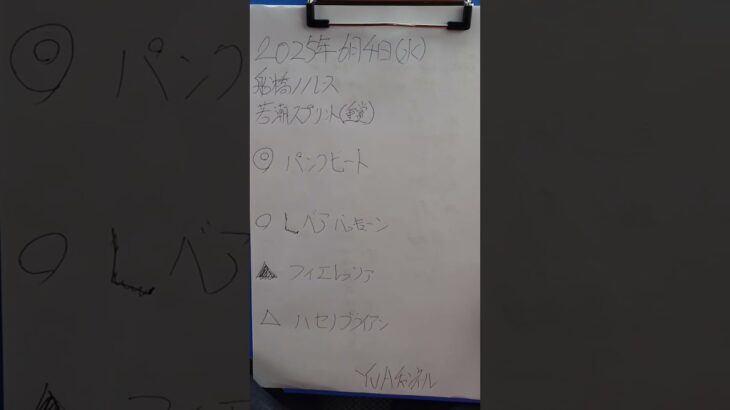 2025年6月4日(水)
船橋11レース
若潮スプリント(重賞)
◎ パンクヒート
○ レベアバッローン
▲ フィエレッツア
△ ハセノブライアン
YUAチャンネル